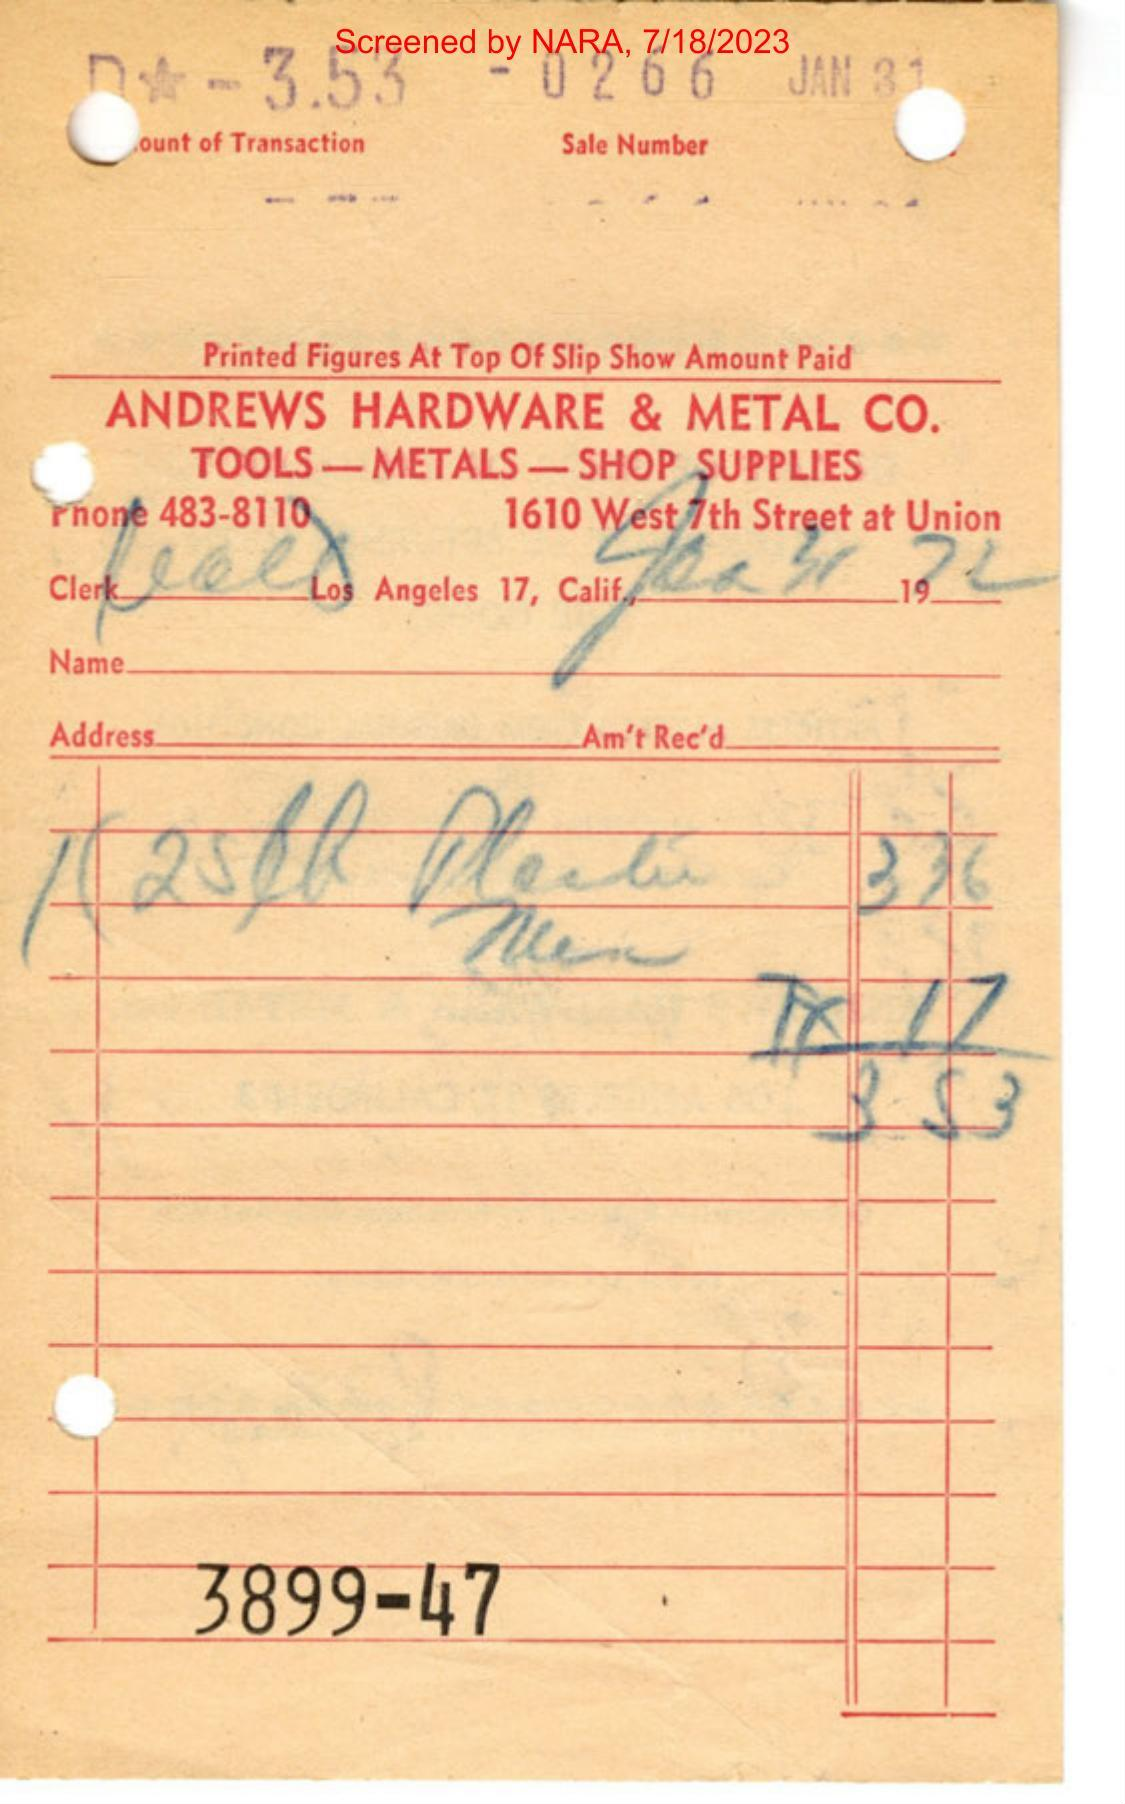 Screened by NARA, 7/18/2023
D☆-3.53 -0266 JAN 31
ount of Transaction Sale Number
Printed Figures At Top Of Slip Show Amount Paid
ANDREWS HARDWARE & METAL CO.
TOOLS — METALS — SHOP SUPPLIES
Phone 483-8110 1610 West 7th Street at Union
Clerk Los Angeles 17, Calif., Jan 31 1972
Name
Address Am't Rec'd
1 25 Plastic 3 36
TX 17
3 53
3899-47